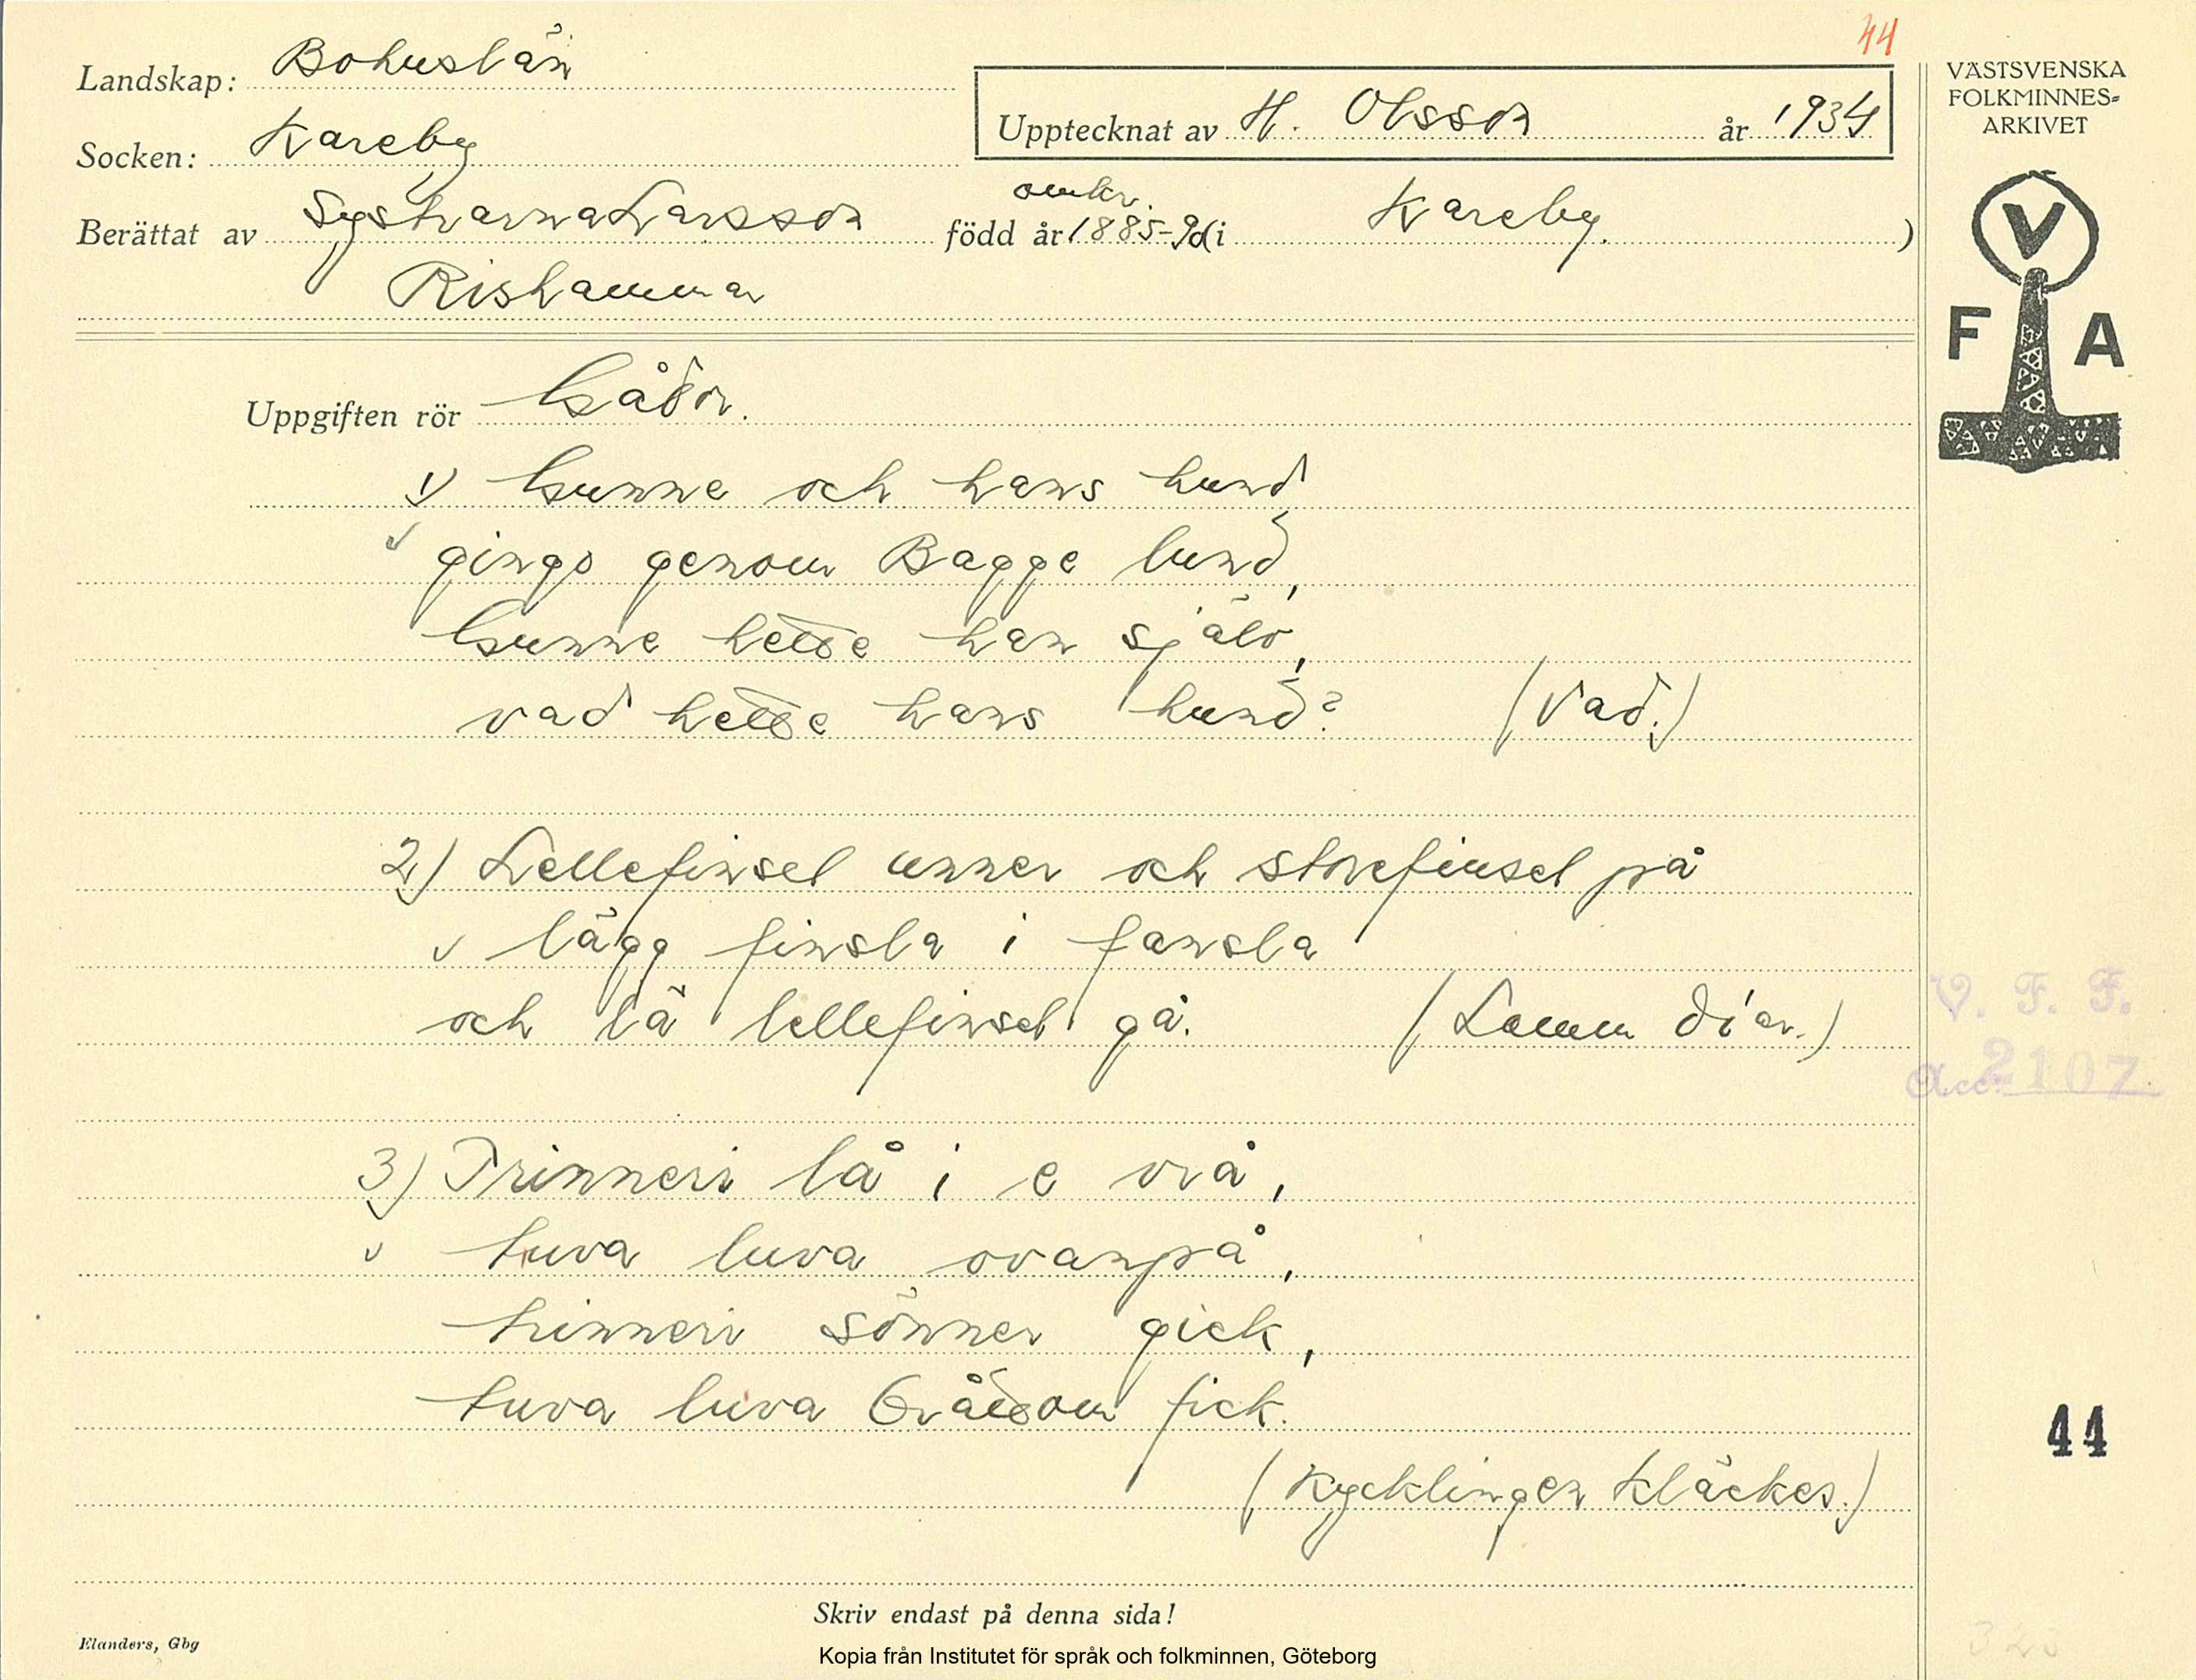 44
Landskap: Bohuslän
Socken: Kareby
Upptecknat av H. Olsson år 1934
Berättat av Systrarna Larsson född år omkr. 1885-90 (i Kareby.)
Rishammar
VÄSTSVENSKA
FOLKMINNES-
ARKIVET
V
F A
Uppgiften rör Gåtor.
1) Gunne och hans hund
gingo genom Bagge lund,
Gunne hette han själv,
vad hette hans hund? (Vad.)
2) Lellefinsel unner och storefinsel på
lägg finsla i fansla
och lä lellefinsel gå. (Lamm diar.)
V. F. F.
Acc. 2107
3) Trinneri lå i e vrå,
luva ovanpå,
sönner gick,
luva bråttom fick.
(Kycklingen kläckes.)
44
Skriv endast på denna sida!
Elanders, Gbg
Kopia från Institutet för språk och folkminnen, Göteborg